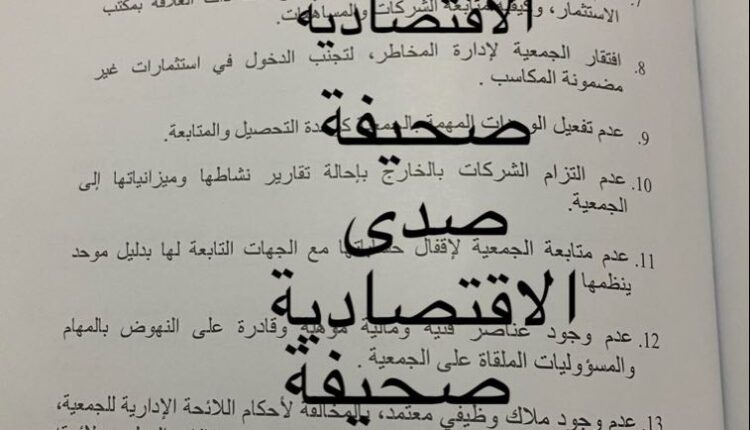 7. الاستثمار، وكيفية متابعة الشركات والمساهمات.
8. افتقار الجمعية لإدارة المخاطر، لتجنب الدخول في استثمارات غير
مضمونة المكاسب .
9. عدم تفعيل المهمة التحصيل والمتابعة.
10. عدم التزام الشركات بالخارج بإحالة تقارير نشاطها وميزانياتها إلى
الجمعية.
11. عدم متابعة الجمعية لإقفال مع الجهات التابعة لها بدليل موحد
ينظمها
12. عدم وجود عناصر فنية ومالية مؤهلة وقادرة على النهوض بالمهام
والمسؤوليات الملقاة على الجمعية .
13. عدم وجود ملاك وظيفي معتمد، بالمخالفة لأحكام اللائحة الإدارية للجمعية،
الاقتصادية
صحيفة
صدى
الاقتصادية
صحيفة